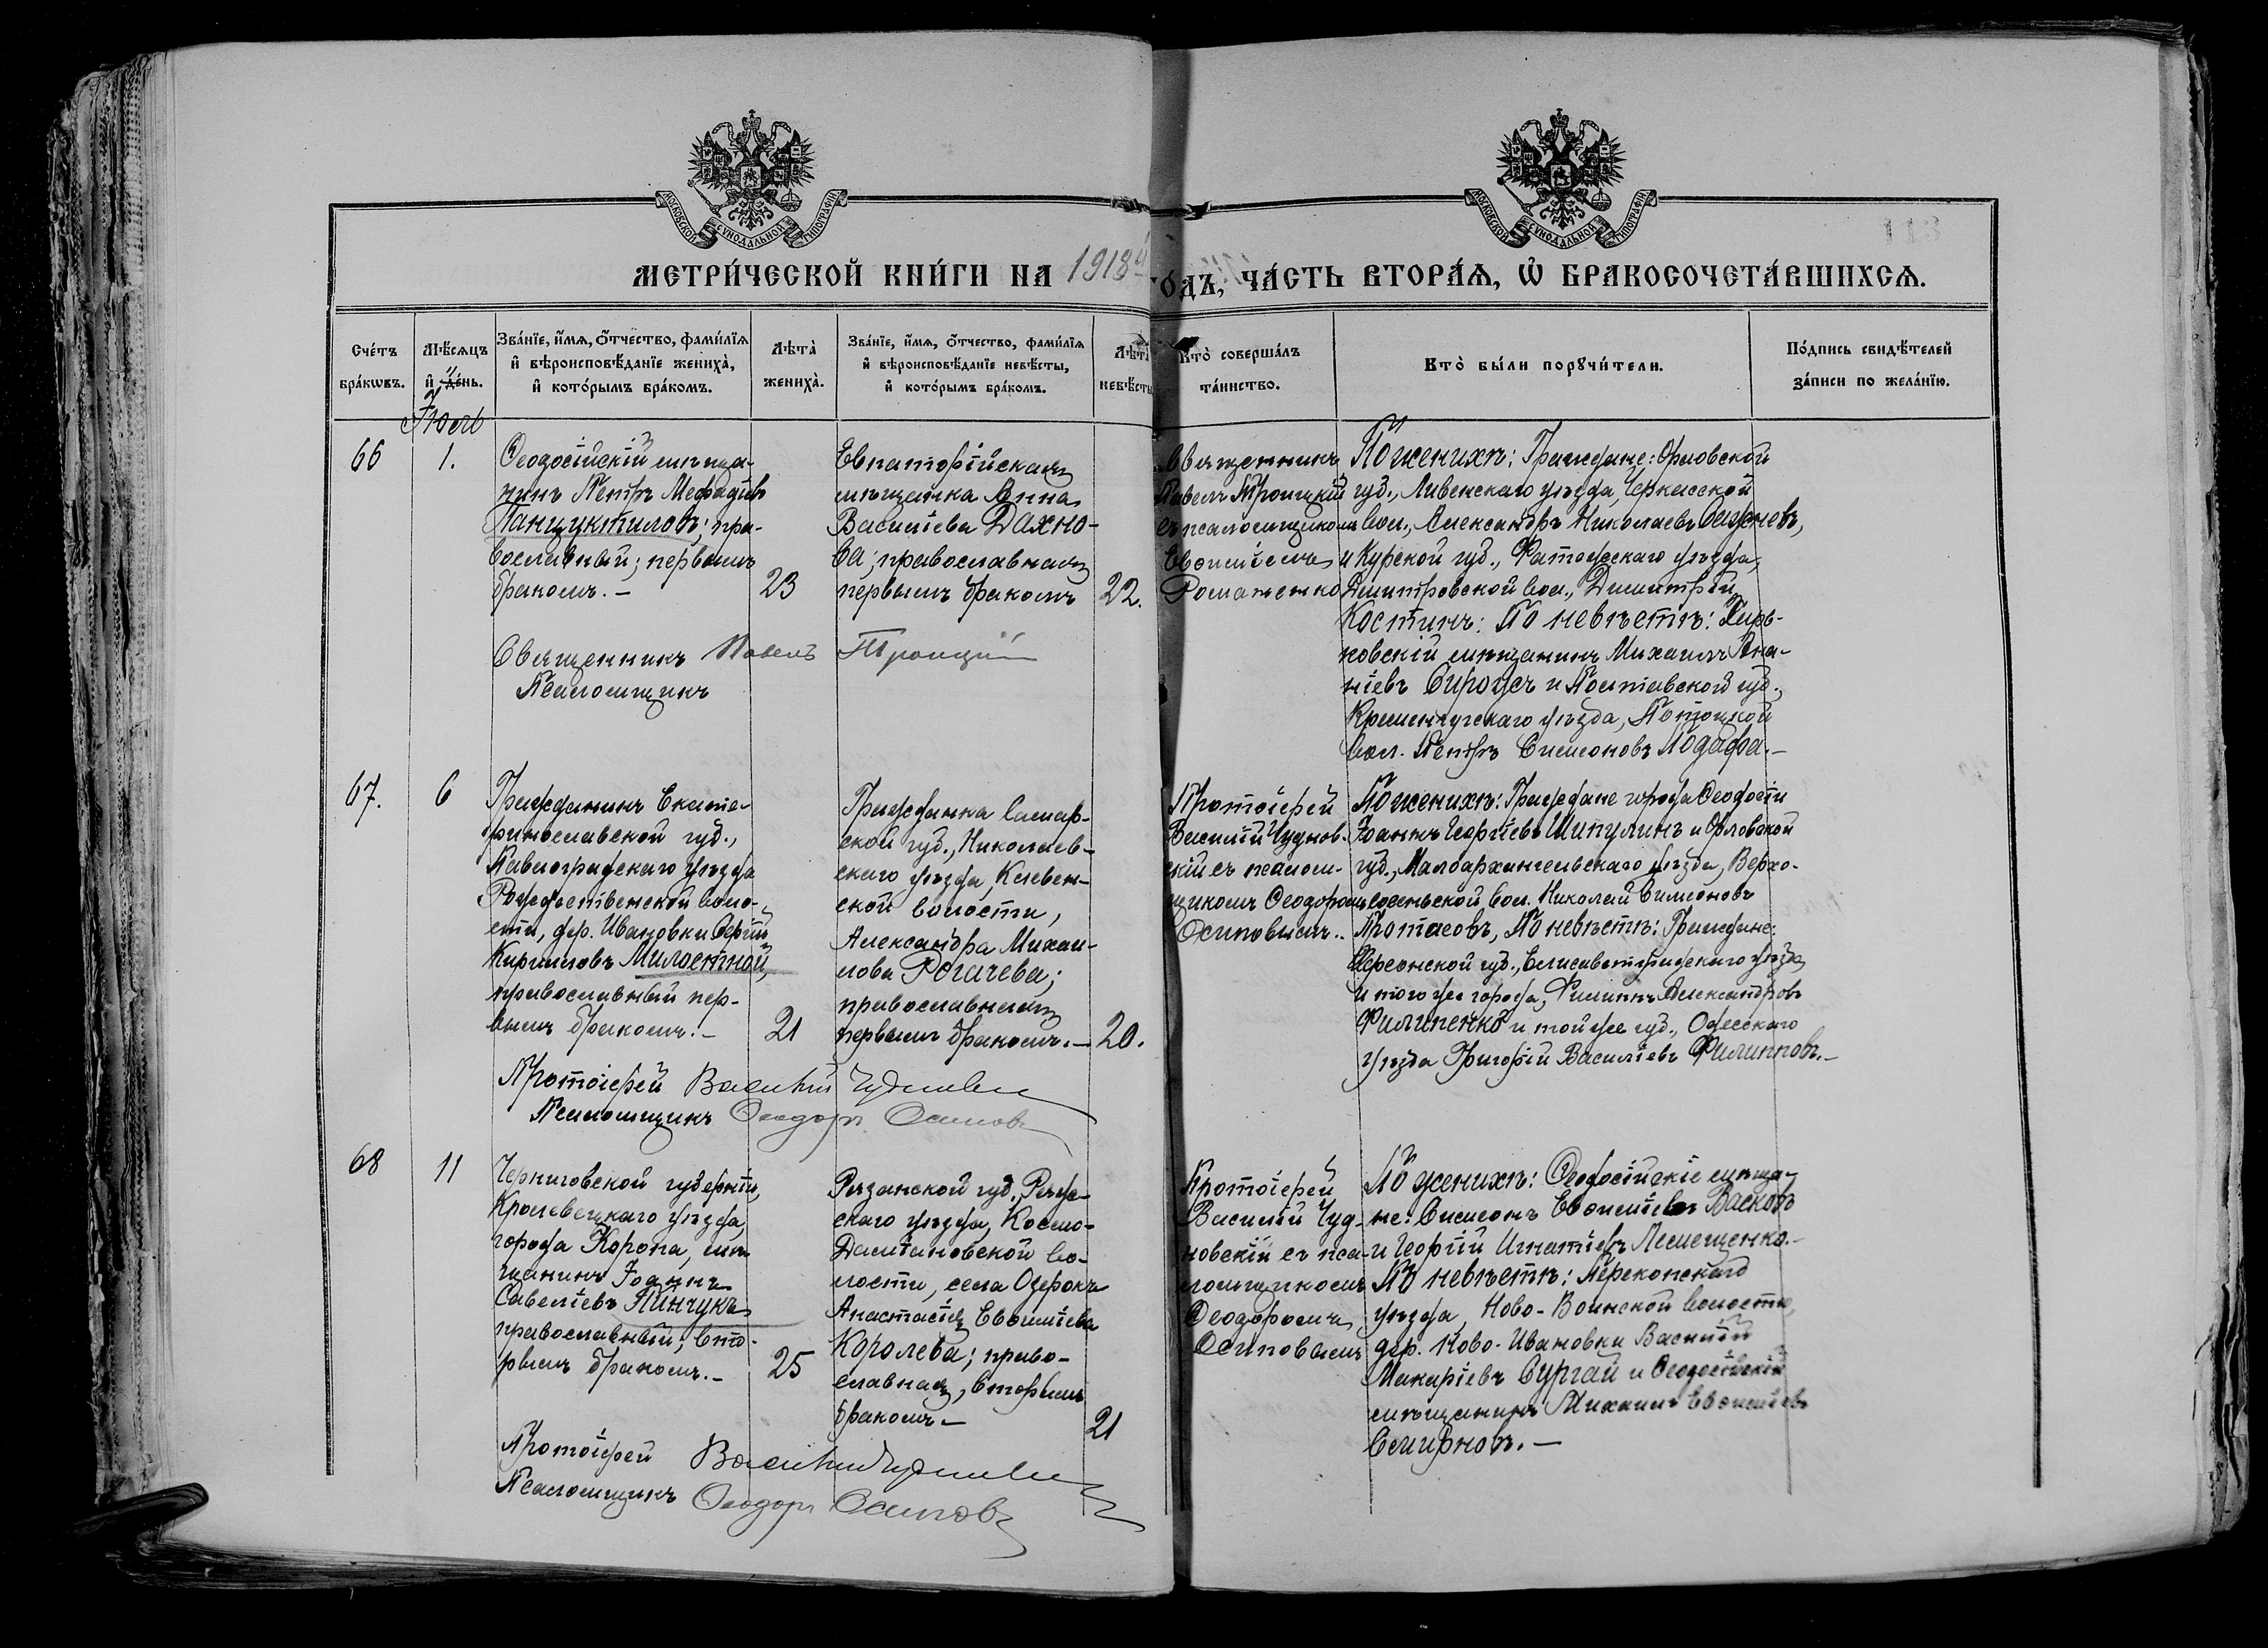 МОСКОВСКОЙ СѴНОДАЛЬНОЙ ТИПОГРАФІИ
МОСКОВСКОЙ СѴНОДАЛЬНОЙ ТИПОГРАФІИ
МЕТРИ́ЧЕСКОЙ КНИ́ГИ НА 1918 ГО́ДЪ, ЧА́СТЬ ВТОРА́Ѧ, Ѡ҆ БРАКОСОЧЕТА́ВШИХСѦ.
Сче́тъ
бра́кѡвъ.
Мѣ́сѧцъ
и҆ де́нь.
Зва́нїе, и҆́мѧ, о҆́тчество, фами́лїѧ
и҆ вѣроисповѣ́данїе жениха̀,
и҆ кото́рымъ бра́комъ.
Лѣ́та̀
жениха̀.
Зва́нїе, и҆́мѧ, о҆́тчество, фами́лїѧ
и҆ вѣроисповѣ́данїе невѣ́сты,
и҆ кото́рымъ бра́комъ.
Лѣ́та̀
невѣ́сты
Кто̀ соверша́лъ
та́инство.
Кто̀ бы́ли порꙋчи́тели.
По́дпись свидѣ́телей
за́писи по жела́нїю.
Іюль
66
1.
Ѳеодосійскій мѣща-
нинъ Петръ Меѳодіевъ
Панцуктиловъ; пра-
вославный; первымъ
бракомъ. –
23
Евпаторійская
мѣщанка Анна
Васильева Дахно-
ва; православная
первымъ бракомъ
22.
Священникъ
Павелъ Троицкій
съ псаломщикомъ
Евѳиміемъ
Романенко
По женихѣ: Граждане: Орловской
губ., Ливенскаго уѣзда, Черкасской
вол., Александръ Николаевъ
и Курской губ., Фатежскаго уѣзда,
Дмитровской вол., Димитрій
Костинъ: По невѣстѣ:
мѣщанинъ Михаилъ Ана-
ніевъ и Полтавской губ.,
Кременчугскаго уѣзда, Потоцкой
вол. Петръ Симеоновъ
Священникъ Павелъ Троицкій
Псаломщикъ
67.
6
Гражданинъ Екате-
ринославской губ.,
Павлоградскаго уѣзда
Рождественской воло-
сти, дер. Ивановки Сергій
Кирилловъ Милостной,
православный пер-
вымъ бракомъ. –
21
Гражданка Самар-
ской губ., Николаев-
скаго уѣзда, Клевен-
ской волости,
Александра Михаи-
лова Рогачева;
православная
первымъ бракомъ. –
20.
Протоіерей
Василій Чуднов-
скій съ псалом-
щикомъ Ѳеодоромъ
Осиповымъ..
По женихѣ: Граждане города Ѳеодосіи
Іоаннъ Георгіевъ Шипулинъ и Орловской
губ., Малоархангельскаго уѣзда, Верхо-
сосеньской вол. Николай Симеоновъ
Протасовъ, По невѣстѣ: Граждане:
Херсонской губ., Елисаветградскаго уѣзда
и того же города, Филиппъ Александровъ
Филипенко и той же губ., Одесскаго
уѣзда Григорій Василіевъ Филипповъ. –
Протоіерей Василій Чудновскій
Псаломщикъ Ѳеодоръ Осиповъ
68
11
Черниговской губерніи,
Кролевецкаго уѣзда,
города Коропа, мѣ-
щанинъ Іоаннъ
Савеліевъ Пинчукъ
православный; вто-
рымъ бракомъ. –
25
Рязанской губ., Ряж-
скаго уѣзда, Космо-
Даміановской во-
лости, села Озерокъ
Анастасія Евѳиміева
Королева; право-
славная, вторымъ
бракомъ –
21
Протоіерей
Василій Чуд-
новскій съ пса-
ломщикомъ
Ѳеодоромъ
Осиповымъ
По женихѣ: Ѳеодосійскіе мѣща-
не: Симеонъ Евѳиміевъ Васковъ
и Георгій Игнатіевъ Лемешенко. –
По невѣстѣ: Перекопскаго
уѣзда, Ново-Воинской волости,
дер. Ново-Ивановки Василій
Макаріевъ Сургай и Ѳеодосійскій
мѣщанинъ Михаилъ Евѳиміевъ
Смирновъ. –
Протоіерей Василій Чудновскій
Псаломщикъ Ѳеодоръ Осиповъ